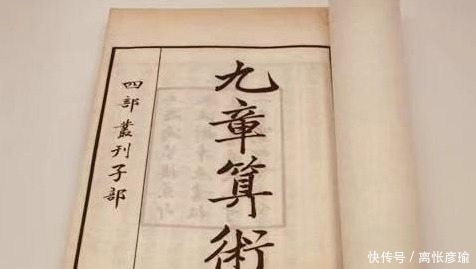 九章算術
四部叢刊子部
快传号／离怅彦瑜